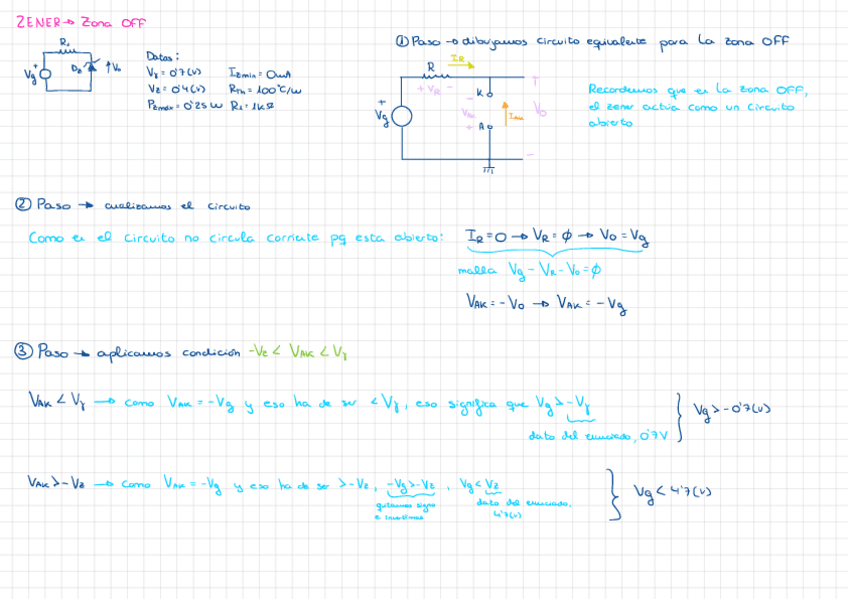 ZENER → Zona OFF
R₁
Vg
+
Dz
Vo
Datos:
Vγ = 0'7(V) Izmin = 0mA
Vz = 0'4(V) RTh = 100°C/W
Pzmáx = 0'25W R₁ = 1kΩ
① Paso → dibujamos circuito equivalente para la zona OFF
IR
R
+ VR -
K
-
VAK
+
A
+
Vg
Vo
-
Recordemos que en la zona OFF,
el zener actúa como un circuito
abierto
② Paso → analizamos el circuito
Como en el circuito no circula corriente pq esta abierto: IR = 0 → VR = ϕ → Vo = Vg
malla Vg - VR - Vo = ϕ
VAK = - Vo → VAK = - Vg
③ Paso → aplicamos condición -Vz < VAK < Vγ
VAK < Vγ → como VAK = -Vg y eso ha de ser < Vγ, eso significa que Vg > -Vγ } Vg > -0'7(V)
dato del enunciado, 0'7V
VAK > -Vz → como VAK = -Vg y eso ha de ser > -Vz, -Vg > -Vz, Vg < Vz } Vg < 4'7(V)
quitamos signo
e invertimos
dato del enunciado.
4'7(V)